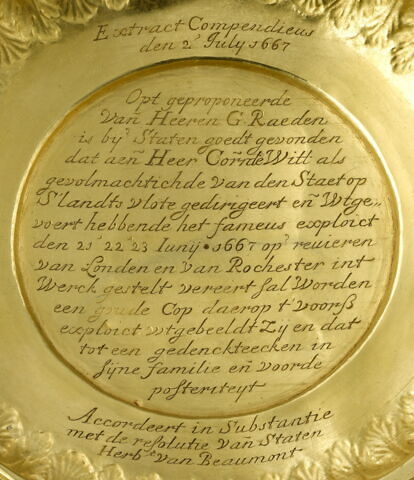 Extract Compendieus
den 2e July 1667
Opt geproponeerde
van Heeren G. Raeden
is bij Staten goedt gevonden
dat aen Heer Corn. de Witt als
gevolmachtichde van den Staet op
S'landts vlote gedirigeert en wtge„
voert hebbende het fameus exploict
den 21 22 23 Iunij 1667 op reuieren
van Londen en van Rochester int
Werck gestelt vereert sal Worden
een goude Cop daerop t' voorß
exploict wtgebeeldt Zij en dat
tot een gedenckteecken in
sijne familie en voorde
posteriteyt
Accordeert in Substantie
met de resolutie van Staten
Herb. van Beaumont